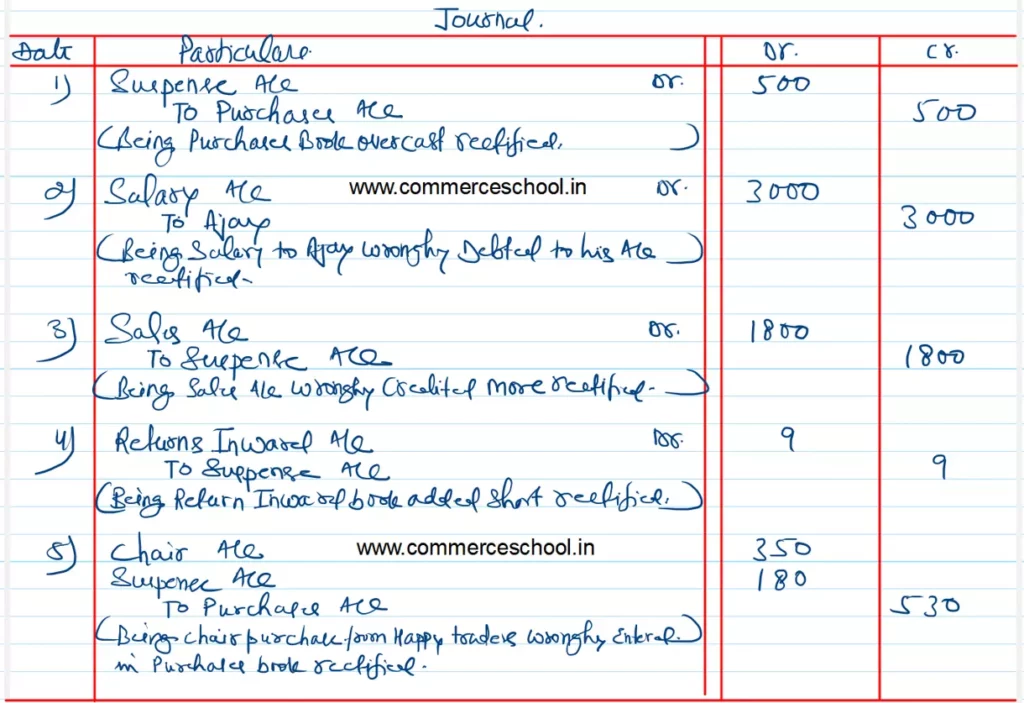 Journal.
Date Particulars Dr. Cr.
1) Suspense A/c Dr. 500
To Purchases A/c 500
(Being Purchases Book overcast rectified.)
2) Salary A/c www.commerceschool.in Dr. 3000
To Ajay 3000
(Being Salary to Ajay wrongly Debited to his A/c
rectified-)
3) Sales A/c Dr. 1800
To Suspense A/c 1800
(Being Sales A/c wrongly Credited more rectified-)
4) Returns Inward A/c Dr. 9
To Suspense A/c 9
(Being Return Inward book added short rectified.)
5) Chair A/c www.commerceschool.in 350
Suspense A/c 180
To Purchases A/c 530
(Being chair purchase from Happy traders wrongly Entered.)
in Purchases book rectified.